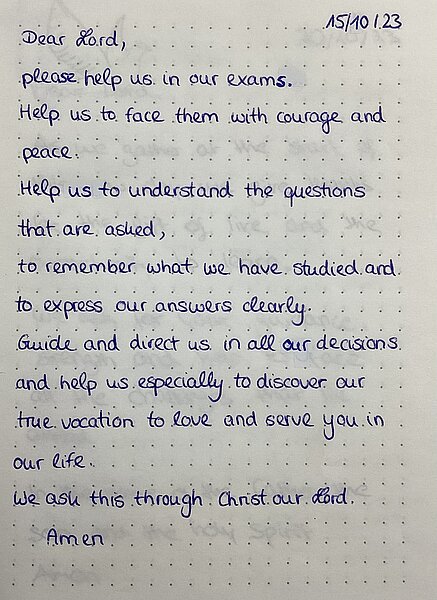 15/10/23
Dear Lord,
please help us in our exams.
Help us to face them with courage and
peace.
Help us to understand the questions
that are asked,
to remember what we have studied and
to express our answers clearly.
Guide and direct us in all our decisions
and help us especially to discover our
true vocation to love and serve you in
our life.
We ask this through Christ our Lord.
Amen